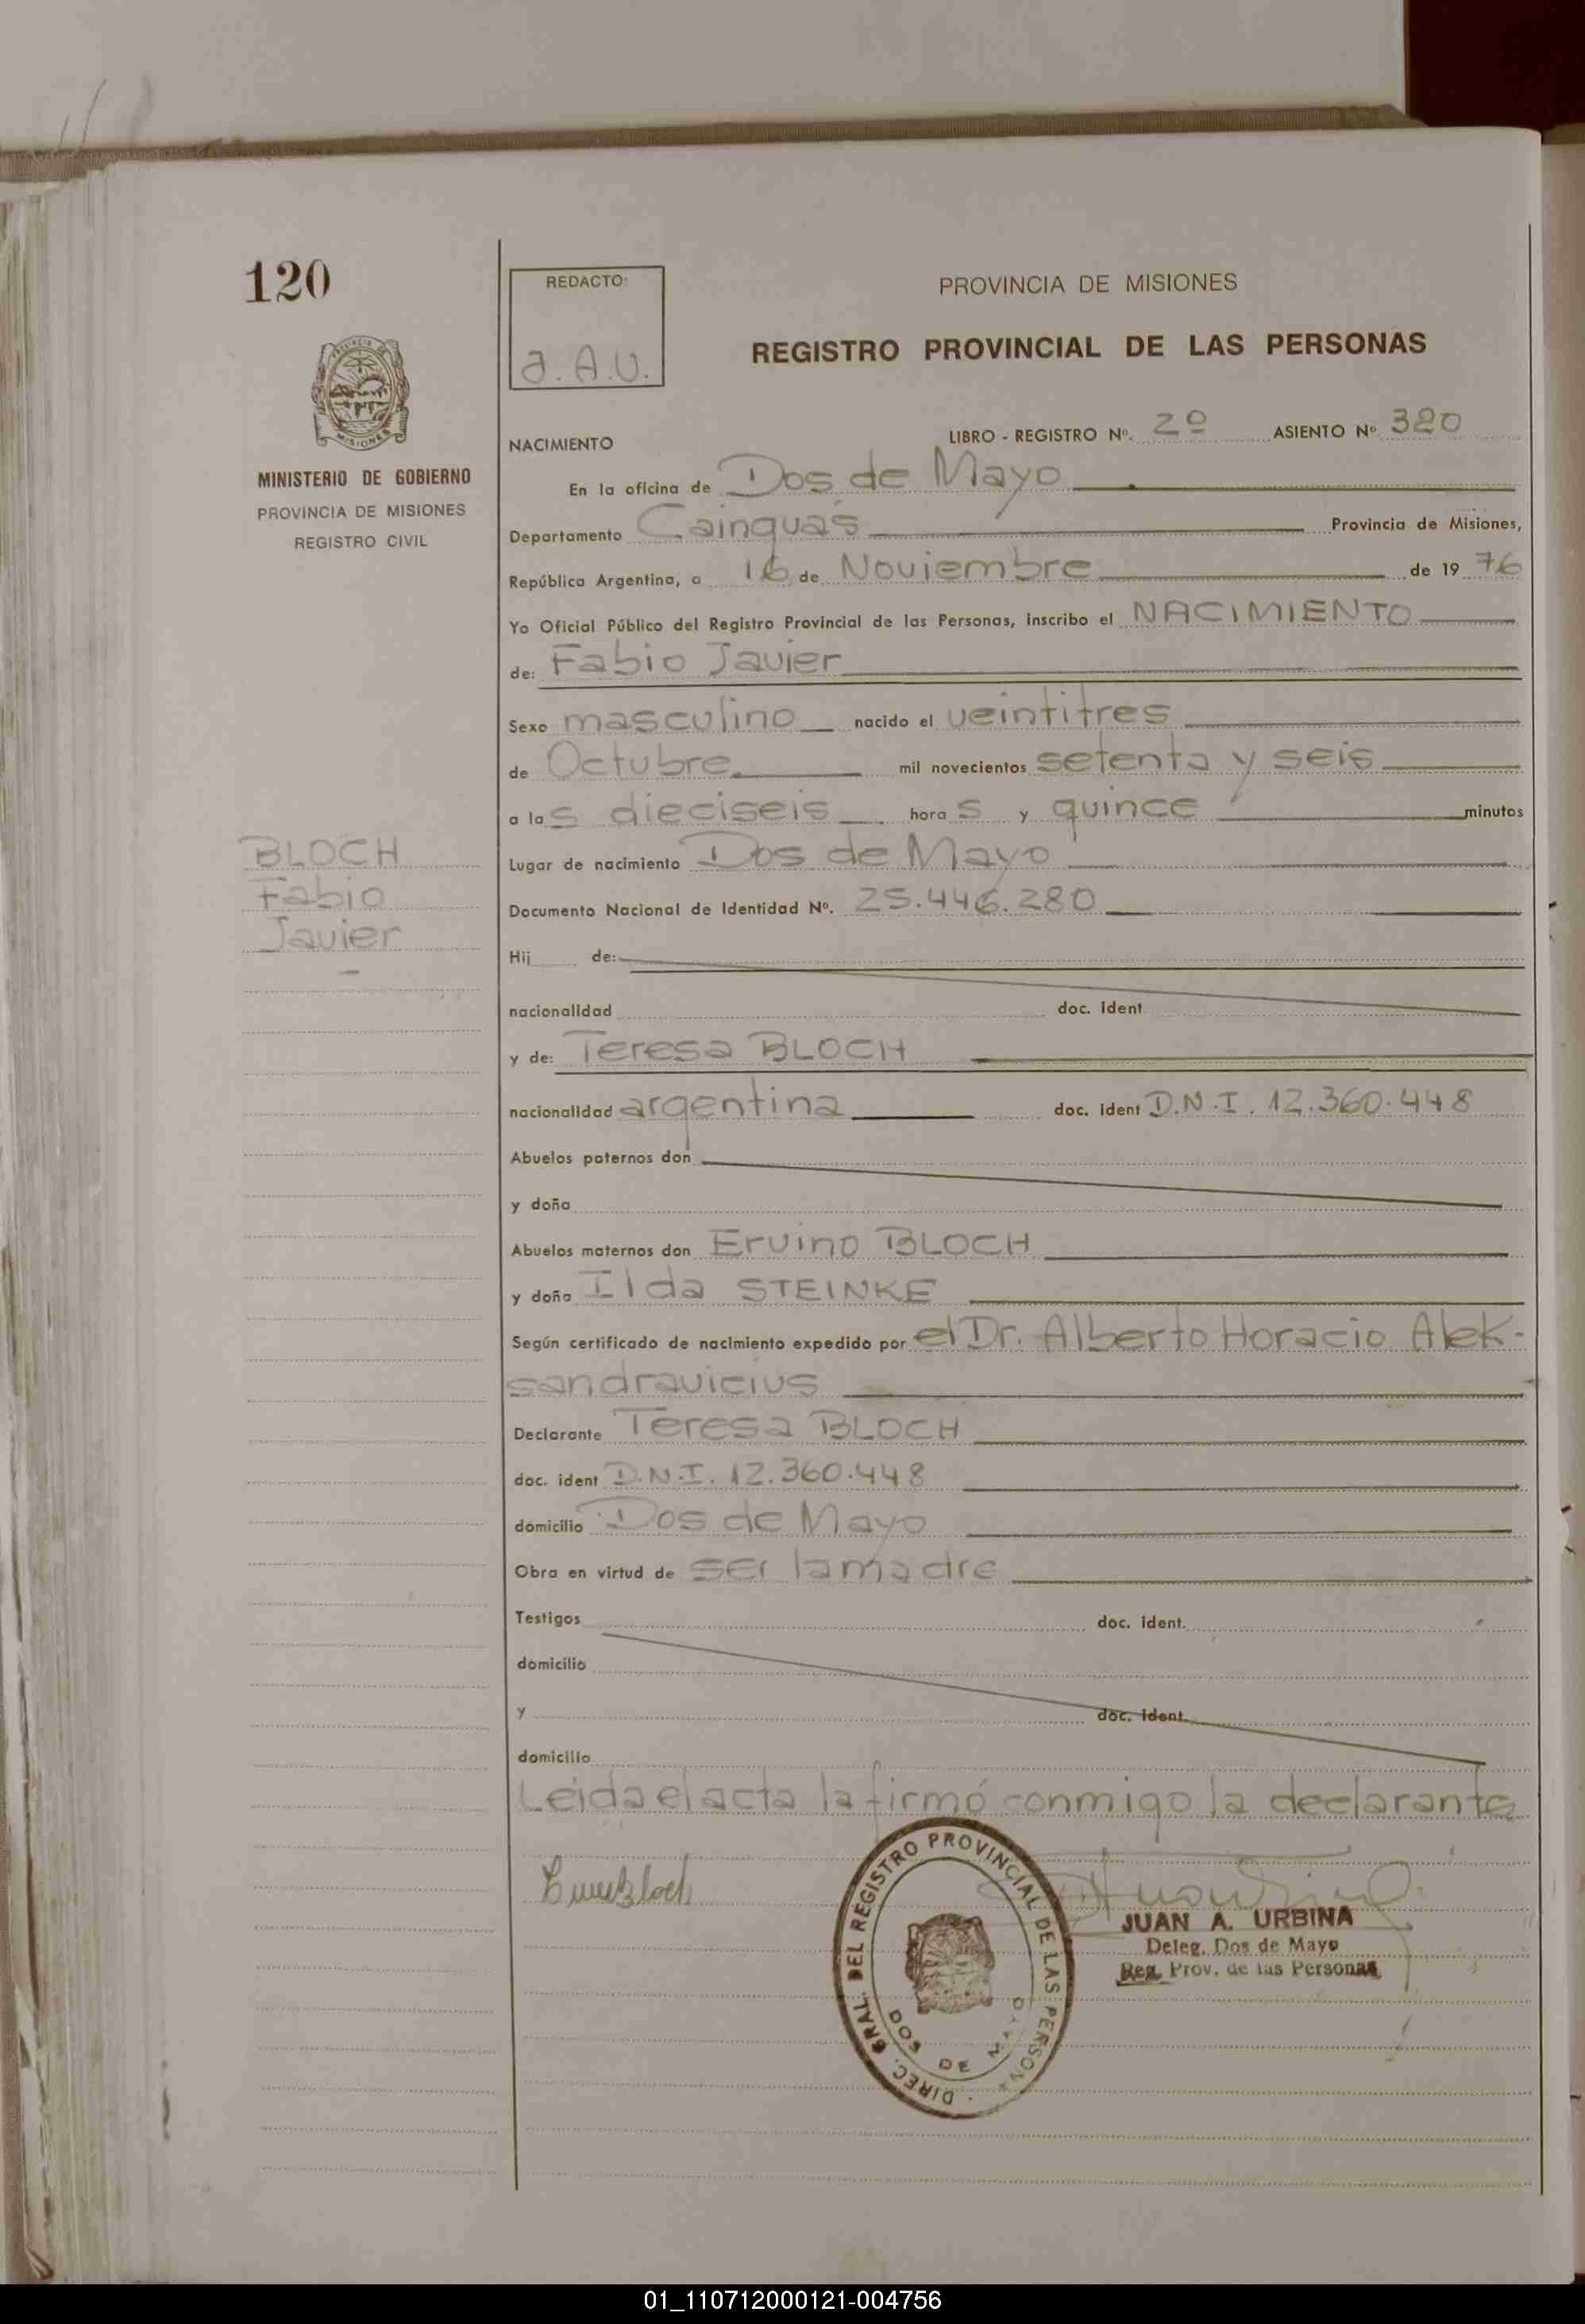 120
MINISTERIO DE GOBIERNO
PROVINCIA DE MISIONES
REGISTRO CIVIL
BLOCH
Fabio
Javier
REDACTO:
J.A.U.
PROVINCIA DE MISIONES
REGISTRO PROVINCIAL DE LAS PERSONAS
NACIMIENTO
LIBRO - REGISTRO Nº. 2º ASIENTO Nº 320
En la oficina de Dos de Mayo
Departamento Cainguás Provincia de Misiones,
República Argentina, a 16 de Noviembre de 19 76
Yo Oficial Público del Registro Provincial de las Personas, inscribo el NACIMIENTO
de: Fabio Javier
Sexo masculino nacido el veintitres
de Octubre mil novecientos setenta y seis
a las dieciseis horas y quince minutos
Lugar de nacimiento Dos de Mayo
Documento Nacional de Identidad Nº. 25.446.280
Hij de:
nacionalidad doc. ident
y de: Teresa BLOCH
nacionalidad argentina doc. ident D.N.I. 12.360.448
Abuelos paternos don
y doña
Abuelos maternos don Ervino BLOCH
y doña Ilda STEINKE
Según certificado de nacimiento expedido por el Dr. Alberto Horacio Alek-
sandravicius
Declarante Teresa BLOCH
doc. ident D.N.I. 12.360.448
domicilio Dos de Mayo
Obra en virtud de ser la madre
Testigos doc. ident.
domicilio
y doc. ident.
domicilio
Leida el acta la firmó conmigo la declarante
Bloch
DIREC. GRAL. DEL REGISTRO PROVINCIAL DE LAS PERSONA
DOS DE MAYO
JUAN A. URBINA
Deleg. Dos de Mayo
Reg. Prov. de las Personas
01_110712000121-004756